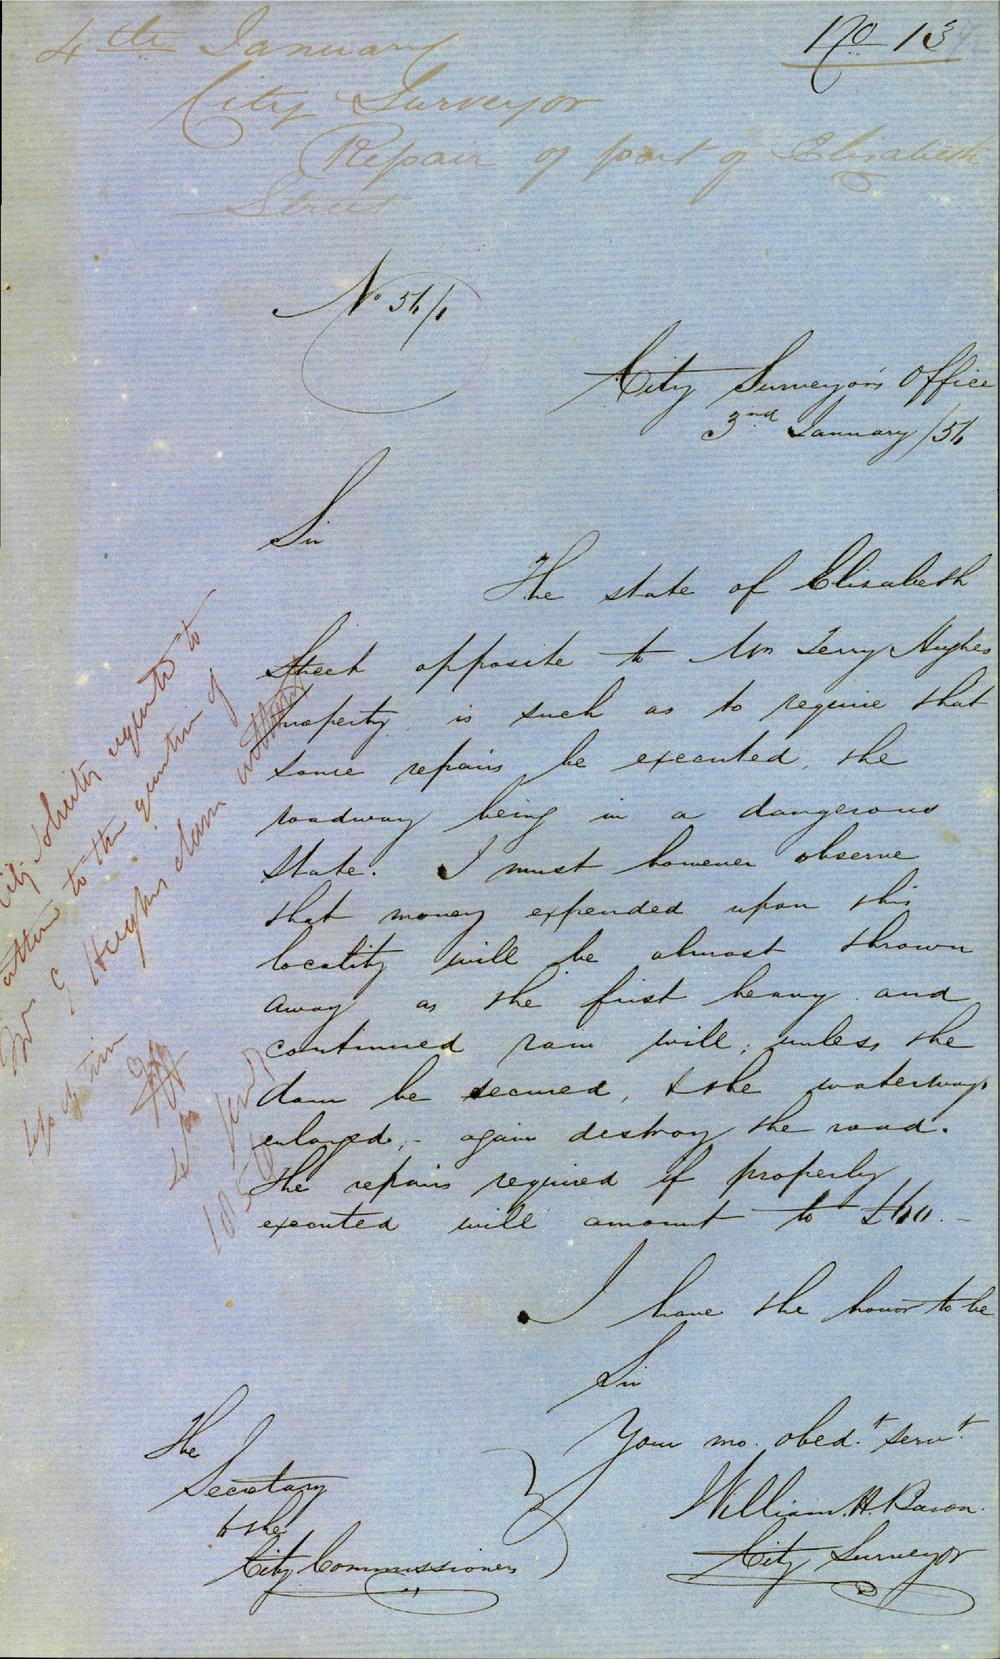 No 13
4th January
City Surveyor
Repair of part of Elizabeth
Street
No 54/1
City Surveyor's Office
3rd January /54
Sir
The state of Elizabeth
Street opposite to Mr Terry Hughes
property is such as to require that
some repairs be executed, the
roadway being in a dangerous
state. I must however observe
that money expended upon this
locality will be almost thrown
away as the first heavy and
continued rain will, unless the
dam be secured, & the waterway
enlarged, - again destroy the road.
The repairs required if properly
executed will amount to £40. -
I have the honor to be
Sir
Your mo. obed.t serv.t
William. H. Baron.
City Surveyor
The
Secretary
to the
City Commissioners
City Solicitor requested to
attend to the question of
Mr Hughes claim